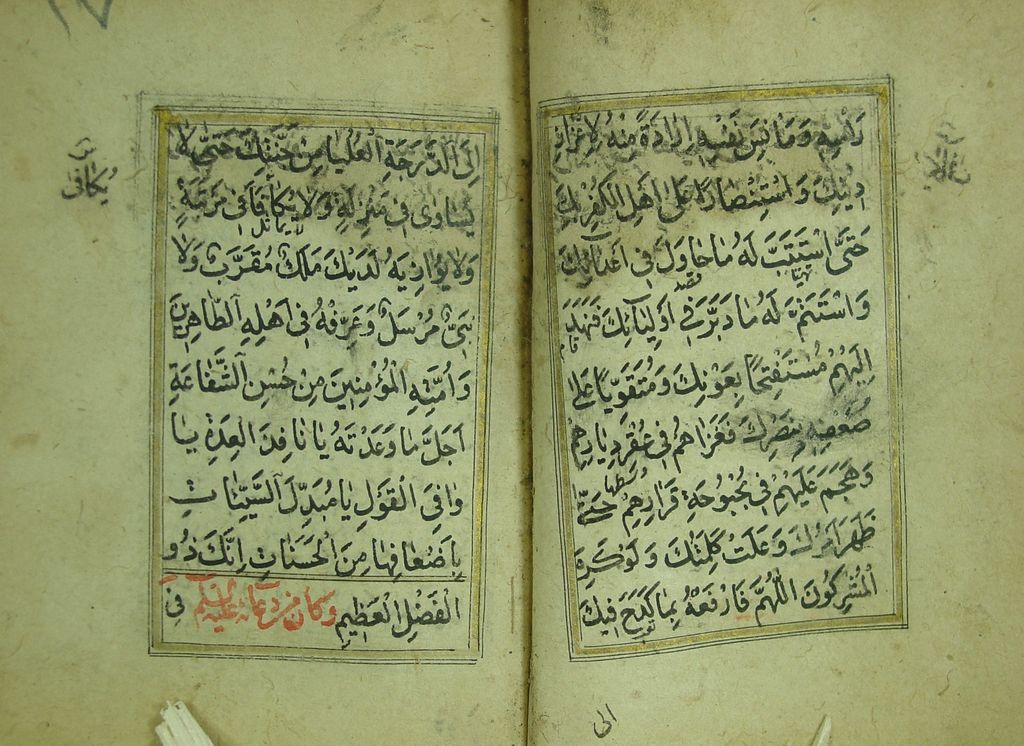 رَأْسِهِ وَمَأْنَسِ نَفْسِهِ اِرَادَةً مِنْهُ لِاِعْزَازِ
دِينِكَ وَاسْتِنْصَارًا عَلَى اَهْلِ الْكُفْرِ بِكَ
حَتَّى اسْتَتَبَّ لَهُ مَا حَاوَلَ فِي اَعْدَائِكَ
وَاسْتَتَمَّ لَهُ مَا دَبَّرَ فِي اَوْلِيَائِكَ فَنَهَدَ
اِلَيْهِمْ مُسْتَفْتِحًا بِعَوْنِكَ وَمُتَقَوِّيًا عَلَى
ضَعْفِهِ بِنَصْرِكَ فَغَزَاهُمْ فِي عُقْرِ دِيَارِهِمْ
وَهَجَمَ عَلَيْهِمْ فِي بُحْبُوحَةِ قَرَارِهِمْ حَتَّى
ظَهَرَ اَمْرُكَ وَعَلَتْ كَلِمَتُكَ وَلَوْ كَرِهَ
الْمُشْرِكُونَ اَللّٰهُمَّ فَارْفَعْهُ بِمَا كَدَحَ فِيكَ
الى
اِلَى الدَّرَجَةِ الْعُلْيَا مِنْ جَنَّتِكَ حَتَّى لَا
يُسَاوَى فِي مَنْزِلَةٍ وَلَا يُكَافَأَ فِي مَرْتَبَةٍ
وَلَا يُوَازِيَهُ لَدَيْكَ مَلَكٌ مُقَرَّبٌ وَلَا
نَبِيٌّ مُرْسَلٌ وَعَرِّفْهُ فِي اَهْلِهِ الطَّاهِرِينَ
وَاُمَّتِهِ الْمُؤْمِنِينَ مِنْ حُسْنِ الشَّفَاعَةِ
اَجَلَّ مَا وَعَدْتَهُ يَا نَافِذَ الْعِدَةِ يَا
وَافِيَ الْقَوْلِ يَا مُبَدِّلَ السَّيِّئَاتِ
بِاَضْعَافِهَا مِنَ الْحَسَنَاتِ اِنَّكَ ذُو
الْفَضْلِ الْعَظِيمِ وَكَانَ مِنْ دُعَائِهِ عَلَيْهِ السَّلَامُ فِي
يُكافى